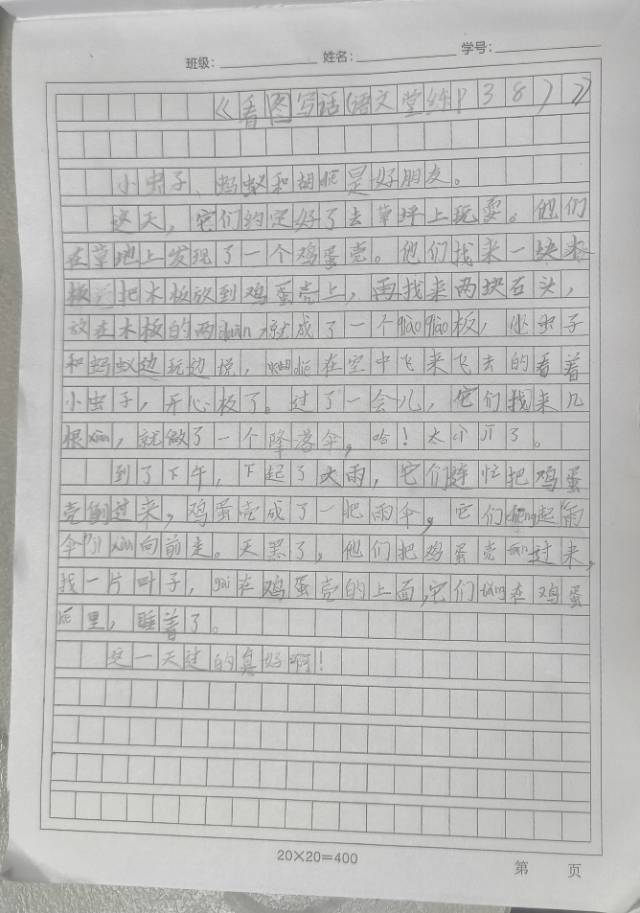 班级： 姓名： 学号：
《看图写话（语文堂练P38）》
小虫子、蚂蚁和胡蝶是好朋友。
这天，它们约定好了去草坪上玩耍。他们
在草地上发现了一个鸡蛋壳。他们找来一块木
板，把木板放到鸡蛋壳上，再找来两块石头，
放在木板的两duān，就成了一个qiāoqiāo板，小虫子
和蚂蚁边玩边说，蝴蝶在空中飞来飞去的看着
小虫子，开心极了。过了一会儿，它们找来几
根xiàn，就做了一个降落伞，哈！太小儿了。
到了下午，下起了大雨，它们连忙把鸡蛋
壳倒过来，鸡蛋壳成了一把雨伞，它们chēng起雨
伞 向前走。天黑了，他们把鸡蛋壳 过来，
找一片叶子，gài在鸡蛋壳的上面，它们tǎng在鸡蛋
壳里，睡着了。
这一天过的真好啊！
20×20=400
第 页